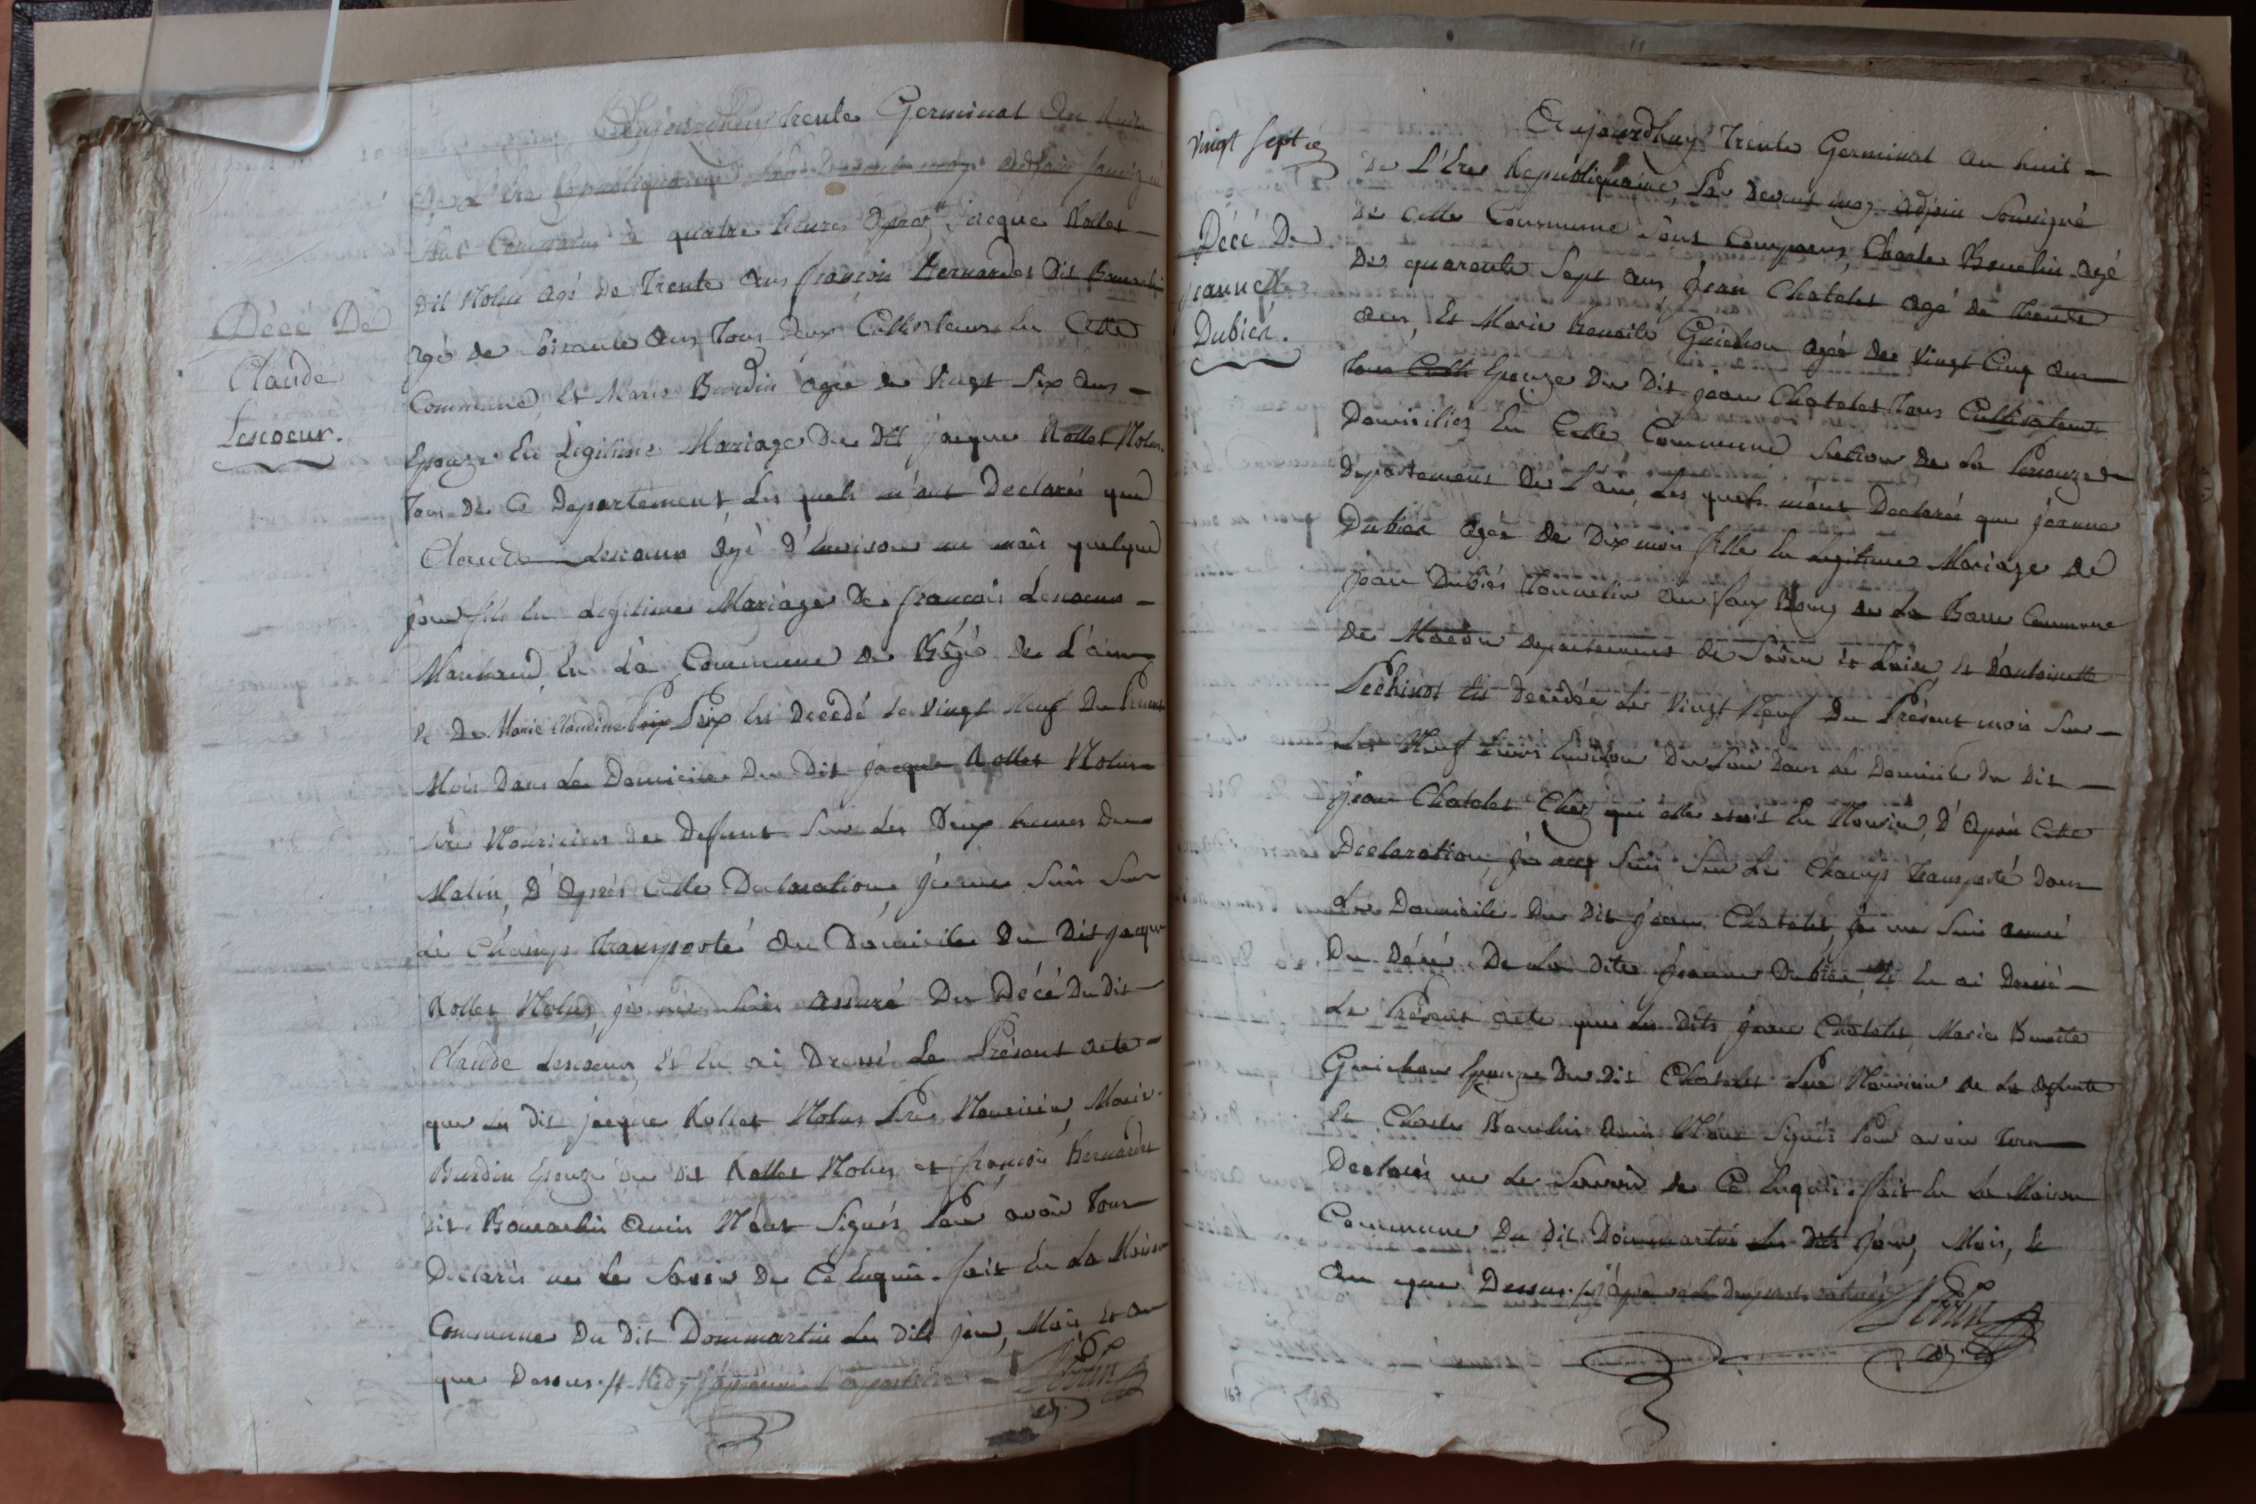 Aujourdhuy trente Germinal An huit
de L'Ere Republiquaine Par Devant moy adjoin Sousigné
Sont Comparus à quatre heures Jacque Rollet
Dit Nolus agé de Trente ans françois Bernardet Dit
agé de Soixante ans Tous Deux Cultivateurs En Cette
Commune, Et Marie Burdin agée de Vingt Six ans
Epouze En Légitime Mariage Du Dit jacque Rollet Nolus
Tous De Ce Departement, Les quels m'ont Declarés que
Claude Lescoeur agé d'Environ un mois quelque
jour fils En Légitime Mariage De françois Lescoeur
Marchand En La Commune de Bâgé De L'ain
Et De Marie Claudine Poix Est Decedé Le Vingt Neuf Du Present
Mois Dans Le Domicile Du Dit jacque Rollet Nolus
Père Nouricier du Defunt Sur Les Deux heures Du
Matin, D'Après Cette Declaration, je me Suis Sur
Le Champs Transporté Au Domicile Du Dit jacque
Rollet Nolus, je me Suis assuré Du Décé Du Dit
Claude Lescoeur Et En ai Dressé Le Présent acte
que Les Dit jacque Rollet Nolus Père Nouricier, Marie
Burdin Epouze du Dit Rollet Nolus et françois Bernardet
Dit amis N'ont Signés Pour avoir Tous
Declarés ne Le Savoir De Ce Enquis. fait En La Maison
Commune Du Dit Dommartin Les Dits jour, Mois Et an
que Dessus
Décé De
Claude
Lescoeur.
Vingt Septe
Décé De
jeannett
Dubief.
Aujourdhuy Trente Germinal an huit
de L'Ere Republiquaine, Par Devant moy adjoin Sousigné
de Cette Commune Sont Comparus, Charle Bouchin agé
De quarante Sept ans jean Chatelet agé de Trente
ans, Et Marie Benoite Guichon agée de Vingt Cinq ans
Tous Cult Epouze Du Dit jean Chatelet Tous Cultivateurs
Domiciliés En Cette Commune Section De La Perouze
Departement De L'ain, Les quels m'ont Declarés que jeanne
Dubief agée de Dix mois fille En Legitime Mariage De
jean Dubief Tonnelier au faux Bourg de La Barre Commune
de Macon departement de Saône et Loire, et D'antoinette
Pechinot Est Decedée Le Vingt Neuf Du Présent mois Sur
Les Neuf heures Environ Du Soir Dans Le Domicile Du Dit
jean Chatelet Chez qui elle etoit En Nourice, D'Après Cette
Déclaration, je me Suis Sur Le Champs Transporté Dans
Le Domicile Du Dit jean Chatelet, je me Suis assuré
Du Décé De La Dite jeanne Dubief, Et En ai Dressé
Le Présent acte que Les Dits jean Chatelet, Marie Benoite
Guichon Epouze Du Dit Chatelet Père Nouricier de La defunte
Et Charle Bouchin amis N'ont Signés Pour avoir Tous
Declarés ne Le Savoir de Ce Enquis. fait En La Maison
Commune Du Dit Dommartin Les Dits jour, Mois, Et
an que Dessus.